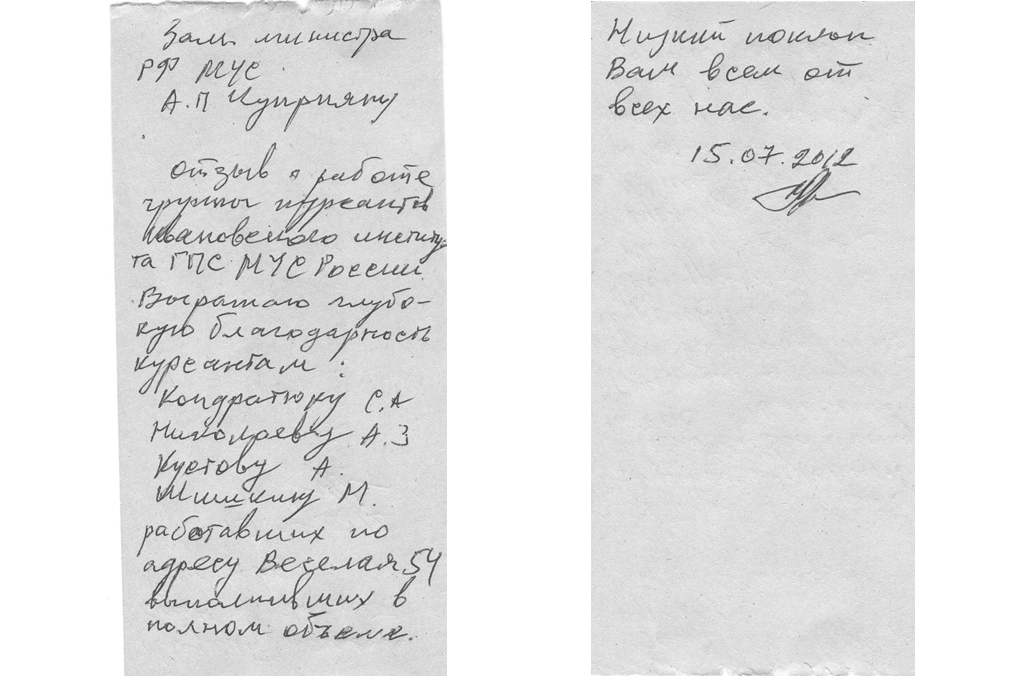 Зам. министра
РФ МЧС.
А.П Куприяну
отзыв о работе
группы курсантов
Ивановского институ-
та ГПС МЧС России
Выражаю глубо-
кую благодарность
курсантам:
Кондратюку С.А
Николаеву А.З
Кустову А.
Шишкину М.
работавших по
адресу Веселая 54
выполнивших в
полном объеме.
Низкий поклон
Вам всем от
всех нас.
15.07.2012